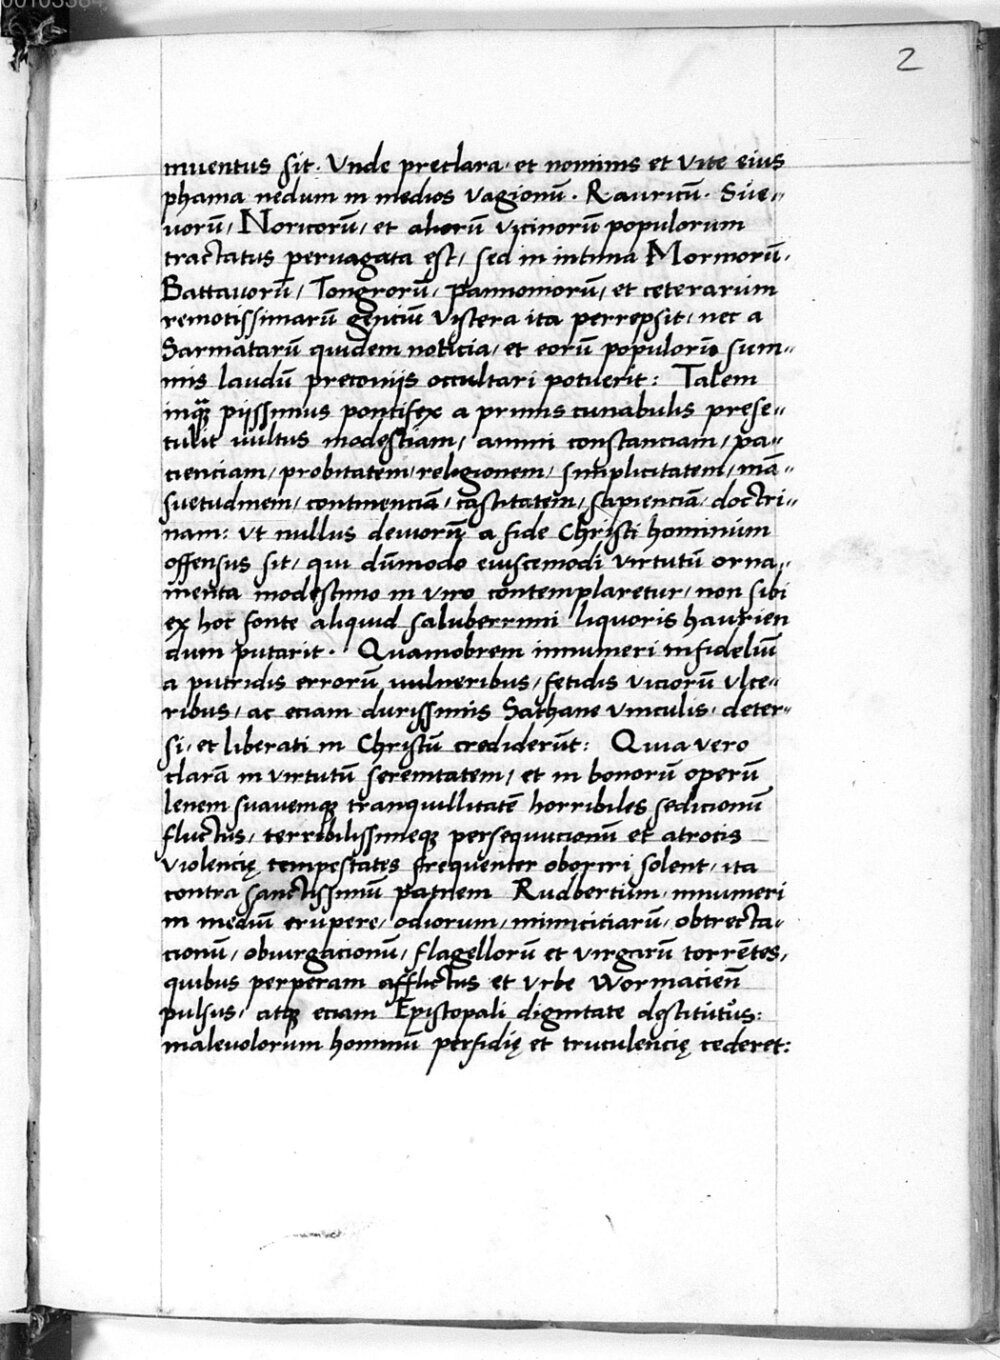 2
inuentus sit. Vnde preclara et nominis et vite eius
phama nedum in medios vagionū. Rauricū. Sue„
uorū, Noricorū, et aliorū vicinorū populorum
tractatus peruagata est, sed in intima Mormorū,
Battauorū, Tongrorū, pannoniorū, et ceterarum
remotissimarū gentiū viscera ita perrepsit, nec a
Sarmatarū quidem noticia, et eorū populorū sum„
mis laudū preconijs occultari potuerit: Talem
inqꝫ pijssimus pontifex a primis cunabulis prese„
tulit uultus modestiam, animi constanciam, pa„
cienciam, probitatem, religionem, simplicitatem, mā„
suetudinem, continenciā, castitatem, sapienciā, doctri„
nam: vt nullus deuiorū a fide Christi hominum
offensus sit, qui dūmodo eiuscemodi virtutū orna„
menta modestino in viro contemplaretur, non sibi
ex hoc fonte aliquid saluberrimi liquoris haurien
dum putarit. Quamobrem innumeri infideliū
a putridis errorū uulneribus, fetidis viciorū vlce„
ribus, ac eciam durissimis Sathane vinculis, deter„
si, et liberati in Christū crediderūt: Quia vero
clarā in virtutū serenitatem, et in bonorū operū
lenem suauemqꝫ tranquillitatē horribiles sedicionū
fluctus, terribilissimeqꝫ persequucionū et atrocis
violencię tempestates frequenter oboriri solent, ita
contra sanctissimū patrem Rudbertum, innumeri
in mediū erupere, odiorum, inimiciciarū, obtrecta„
cionū, obiurgacionū, flagellorū et virgarū torrētes,
quibus perperam afflictus et vrbe wormacieñ
pulsus, atqꝫ eciam Episcopali dignitate destitutus:
maleuolorum hominū perfidię et truculencię cederet: